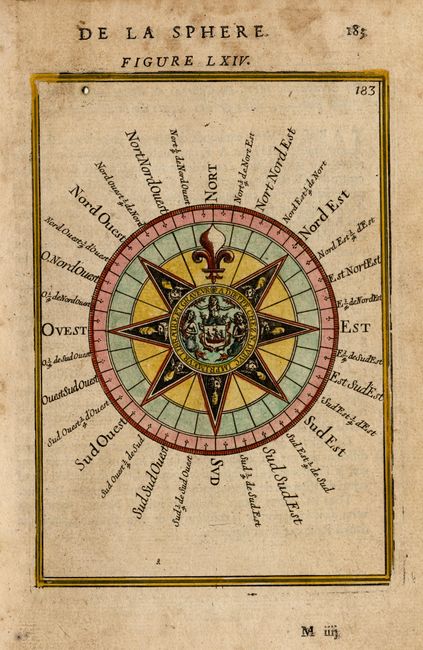 DE LA SPHERE.
185
FIGURE LXIV.
183
NORT
Nort ¼ de Nort Est
Nort Nord Est
Nord Est ¼ de Nort
Nord Est
Nord Est ¼ d'Est
Est Nort Est
E ¼ de Nord Est
EST
E ¼ de Sud Est
Est Sud Est
Sud Est ¼ d'Est
Sud Est
Sud Est ¼ de Sud
Sud Sud Est
Sud ¼ de Sud Est
SVD
Sud ¼ de Sud Ouest
Sud Sud Ouest
Sud Ouest ¼ de Sud
Sud Ouest
Sud Ouest ¼ d'Ouest
Ouest Sud Ouest
O ¼ de Sud Ouest
OVEST
O ¼ de Nord Ouest
O. Nord Ouest
Nord Ouest ¼ d'Ouest
Nord Ouest
Nord Ouest ¼ de Nord
Nort Nord Ouest
Nort ¼ de Nord Ouest
M iiij